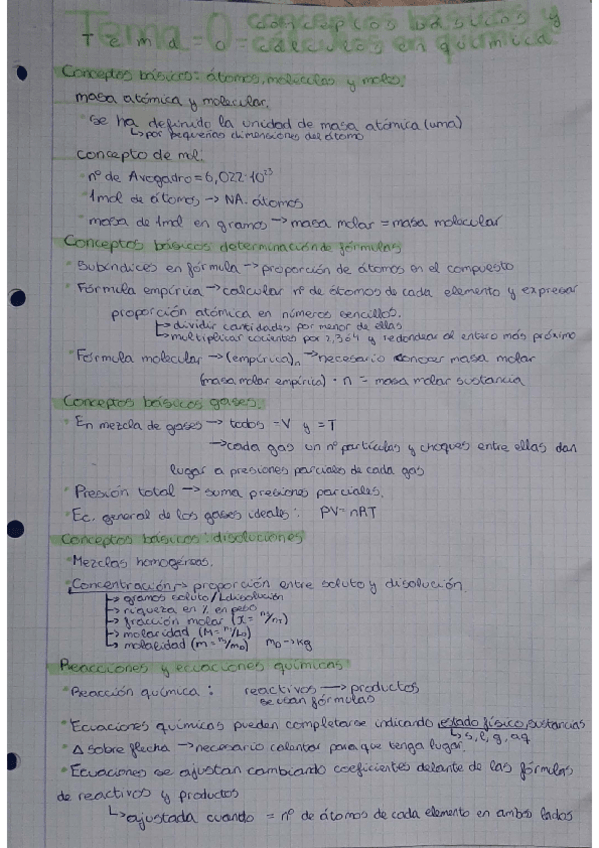 Tema = 0 = conceptos básicos y
cálculos en química
Conceptos básicos: átomos, moléculas y moles:
masa atómica y molecular.
se ha definido la unidad de masa atómica (uma)
↳ por pequeñas dimensiones del átomo
concepto de mol:
nº de Avogadro = 6,022·10²³
1mol de átomos → NA. átomos
masa de 1mol en gramos → masa molar = masa molecular
Conceptos básicos determinación de fórmulas
Subíndices en fórmula → proporción de átomos en el compuesto
Fórmula empírica → calcular nº de átomos de cada elemento y expresar
proporción atómica en números sencillos.
↳ dividir cantidades por menor de ellas
↳ multiplicar cocientes por 2,3 ó 4 y redondear al entero más próximo
Fórmula molecular → (empírica)n → necesario conocer masa molar
(masa molar empírica) · n = masa molar sustancia
Conceptos básicos gases:
En mezcla de gases → todos = V y = T
→ cada gas un nº partículas y choques entre ellas dan
lugar a presiones parciales de cada gas
Presión total → suma presiones parciales.
Ec. general de los gases ideales: PV = nRT
Conceptos básicos: disoluciones
Mezclas homogéneas.
Concentración → proporción entre soluto y disolución
↳ gramos soluto/L disolución
↳ riqueza en % en peso
↳ fracción molar (x = n/nT)
↳ molaridad (M = n/L)
↳ molalidad (m = n/mD) mD → kg
Reacciones y ecuaciones químicas:
Reacción química: reactivos → productos
se usan fórmulas
Ecuaciones químicas pueden completarse indicando estado físico sustancias
↳ s, l, g, aq
Δ sobre flecha → necesario calentar para que tenga lugar.
Ecuaciones se ajustan cambiando coeficientes delante de las fórmulas
de reactivos y productos
↳ ajustada cuando = nº de átomos de cada elemento en ambos lados